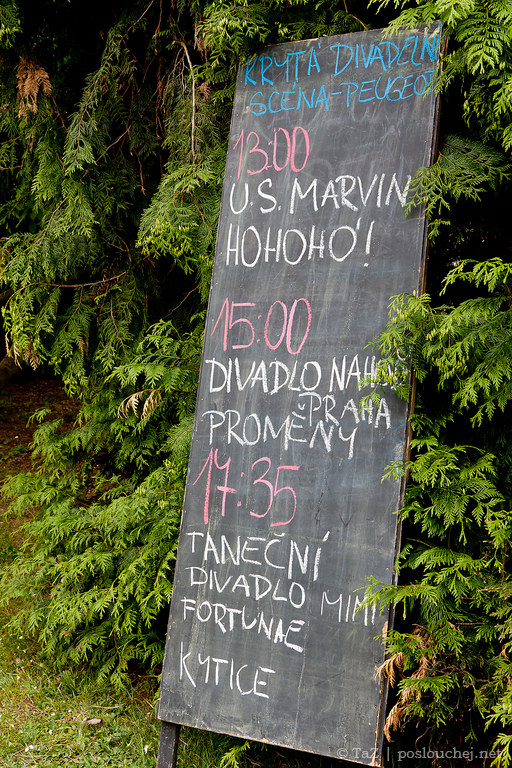 KRYTÁ DIVADELNÍ
SCÉNA-PEUGEOT
13:00
U.S. MARVIN
HOHOHÓ!
15:00
DIVADLO
PRAHA
PROMĚNY
17:35
TANEČNÍ
DIVADLO MIMI
FORTUNAE
KYTICE
© TaZ | poslouchej.net